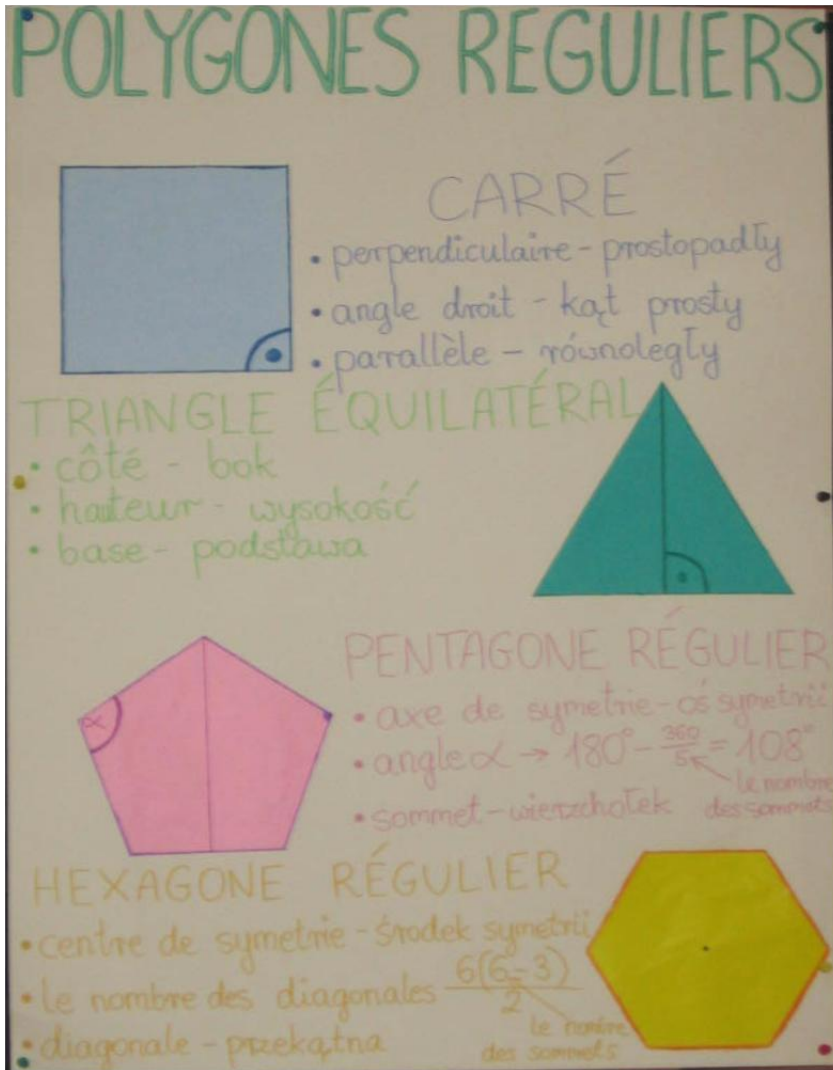 POLYGONES REGULIERS
CARRÉ
• perpendiculaire - prostopadły
• angle droit - kąt prosty
• parallèle - równoległy
TRIANGLE ÉQUILATÉRAL
• côté - bok
• hauteur - wysokość
• base - podstawa
PENTAGONE RÉGULIER
α
• axe de symetrie - oś symetrii
• angle α → 180° - 360/5 = 108°
le nombre
des sommets
• sommet - wierzchołek
HEXAGONE RÉGULIER
• centre de symetrie - środek symetrii
• le nombre des diagonales 6(6-3)/2
le nombre
des sommets
• diagonale - przekątna